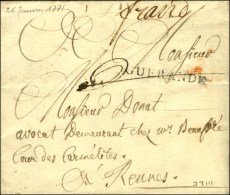 26 Janvier 1771
franco
Monsieur
GUERANDE
Monsieur Donat
avocat Demeurant chez mr
Cour des Carmelites
a Rennes